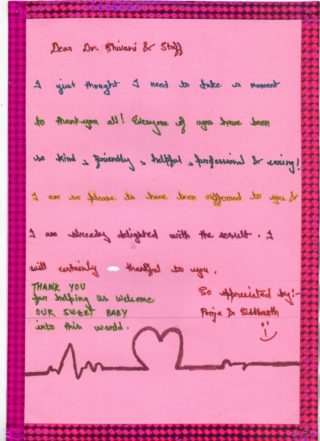 Dear Dr. Shivani & Staff
I just thought I need to take a moment
to thank you all! Everyone of you have been
so kind, friendly, helpful, professional & caring!
I am so please to have been refferred to you &
I am already delighted with the result. I
will certainly thankful to you.
THANK YOU
for helping us welcome
OUR SWEET BABY
into this world.
So appreciated by:-
Pooja & Siddharth